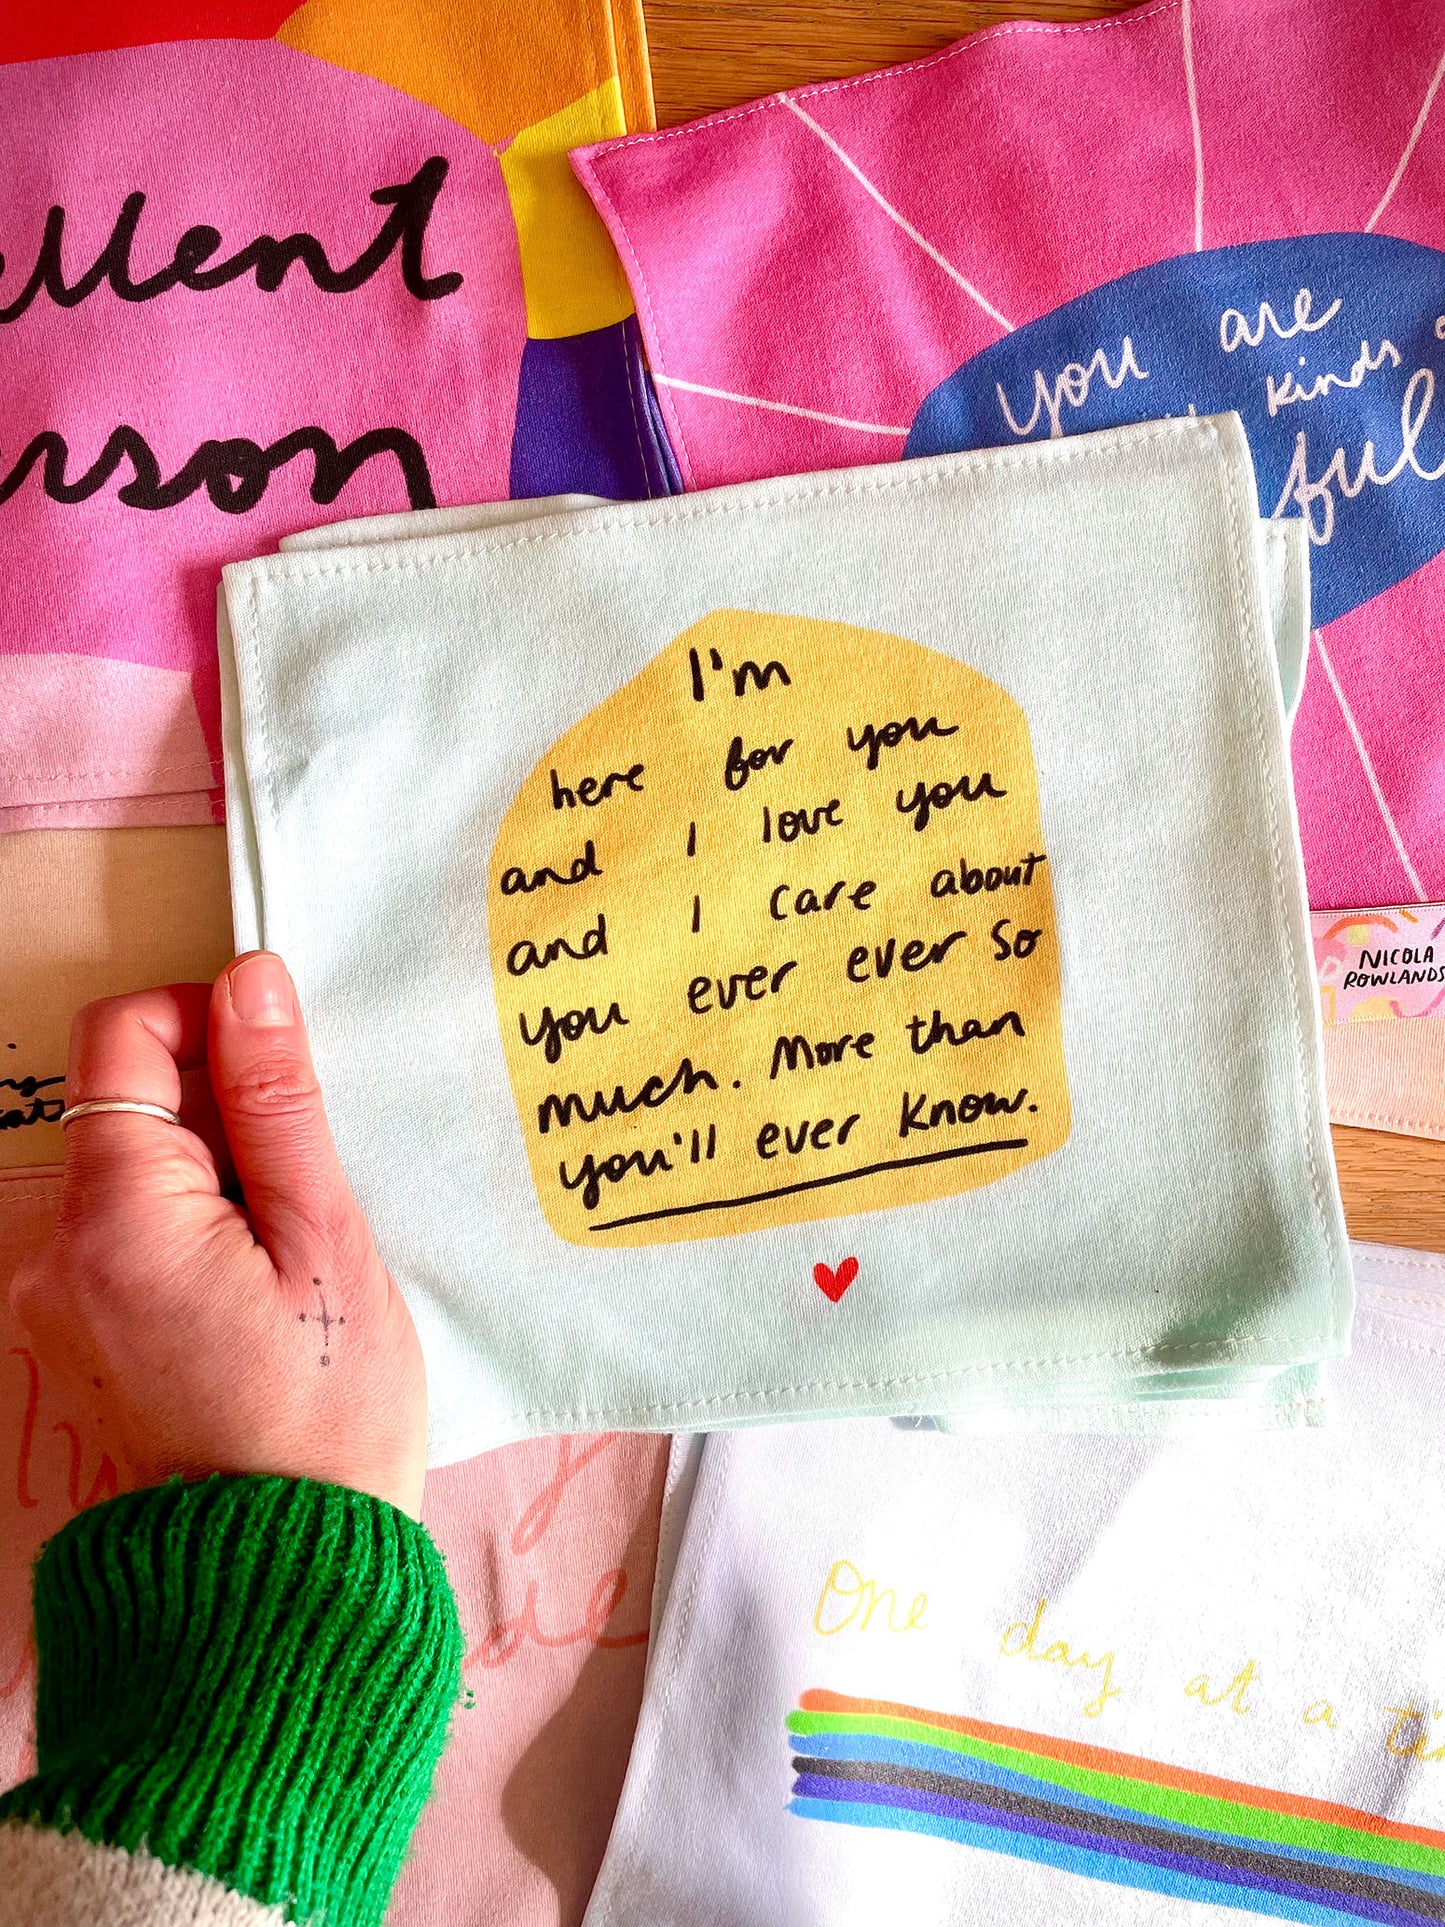 You are
kinds
I'm
here for you
and I love you
and I care about
you ever ever so
much. More than
you'll ever know.
NICOLA
ROWLANDS
One day at a